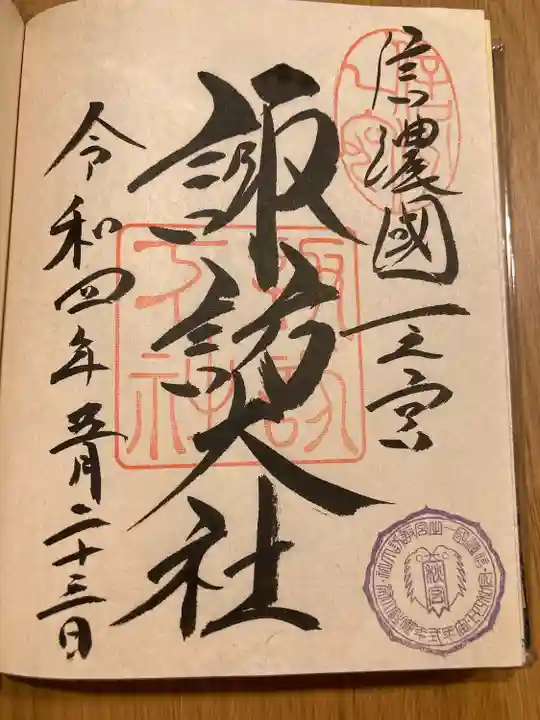 信濃國一之宮
諏訪大社
令和四年五月二十三日
諏訪
下社
秋宮